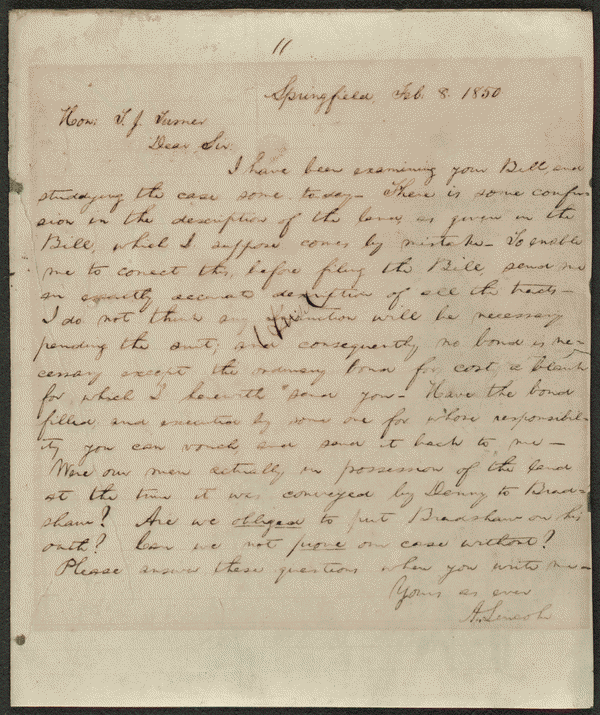 11
Springfield, Feb. 8. 1850
Hon: T. J. Turner
Dear Sir:
I have been examining your Bill, and
studying the case some, to-day— There is some confu-
sion in the description of the land, as given in the
Bill, which I suppose comes by mistake— To enable
me to correct this, before filing the Bill, send me
an exactly accurate description of all the tracts—
I do not think any Injunction will be necessary
pending the suit; and consequently no bond is ne-
cessary except the ordinary bond for cost, a blank
for which I herewith send you— Have the bond
filled, and executed by some one for whose responsibil-
ity you can vouch, and send it back to me—
Were our men actually in possession of the land
at the time it was conveyed by Denny to Brad-
shaw? Are we obliged to put Bradshaw on his
oath? Can we not prove our case without?
Please answer these questions when you write me—
Yours as ever
A. Lincoln